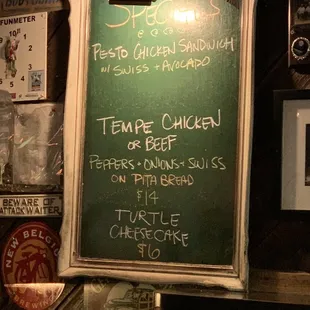 FUNMETER
SPECIALS
PESTO CHICKEN SANDWICH
W/ SWISS + AVOCADO
TEMPE CHICKEN
OR BEEF
PEPPERS + ONIONS + SWISS
ON PITA BREAD
$14
TURTLE
CHEESECAKE
$6
BEWARE OF
ATTACK WAITER
NEW BELGI
BREWING